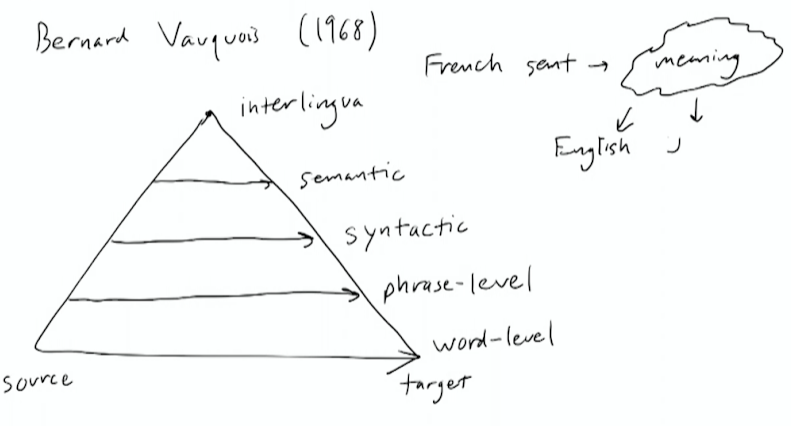 Bernard Vauquois (1968)
French sent → meaning
English
interlingua
semantic
syntactic
phrase-level
word-level
source
target